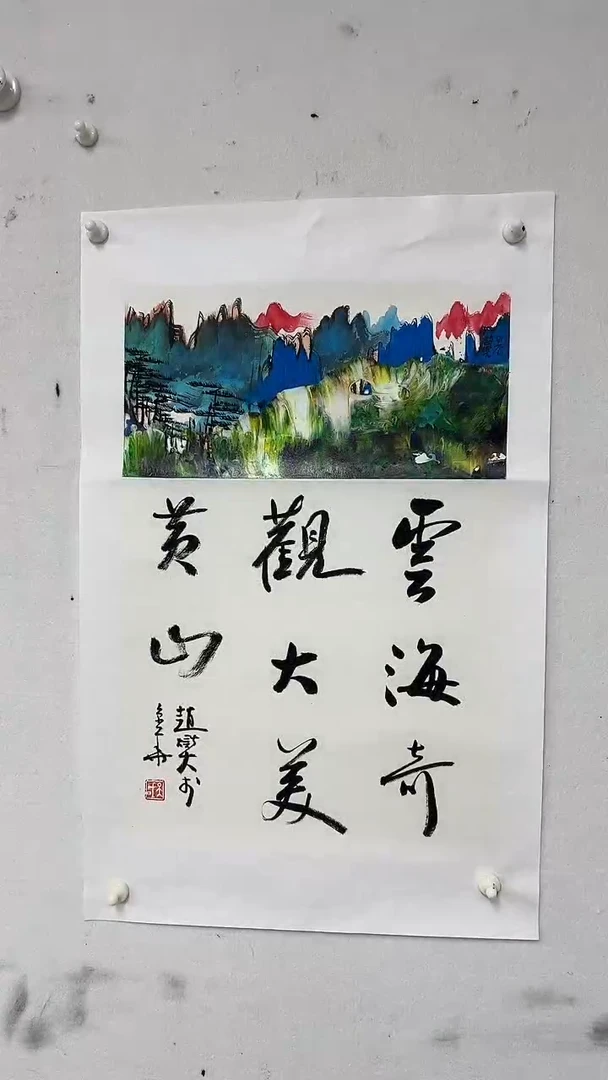 雲海奇
觀大美
黄山
趙